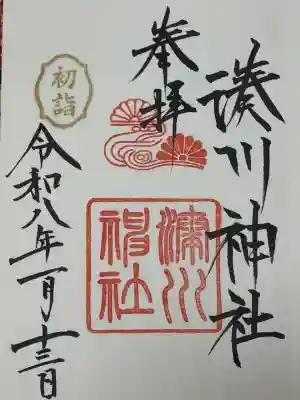 湊川神社
奉拝
湊川神社
初詣
令和八年一月十三日